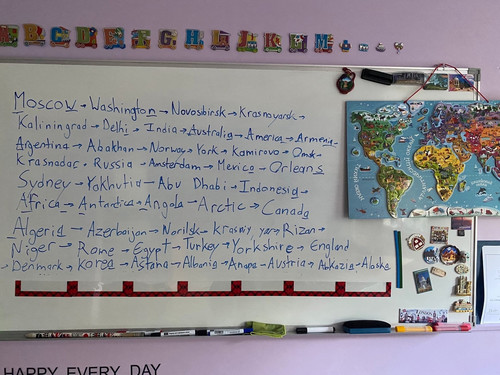 Moscow → Washington → Novosbirsk → Krasnayarsk →
Kaliningrad → Delhi → India → Australia → America → Armenia
Argentina → Abakhan → Norway → York → Kamirovo → Omsk
Krasnadar → Russia → Amsterdam → Mexico → Orleans
Sydney → Yakhutia → Abu Dhabi → Indonesia →
Africa → Antarctica → Angola → Arctic → Canada
Algeria → Azerbaijan → Norilsk → Krasniy yar → Rizan →
Niger → Rome → Egypt → Turkey → Yorkshire → England
→ Denmark → Korea → Astana → Albania → Anapa → Austria → Abkazia → Alaska
HAPPY EVERY DAY